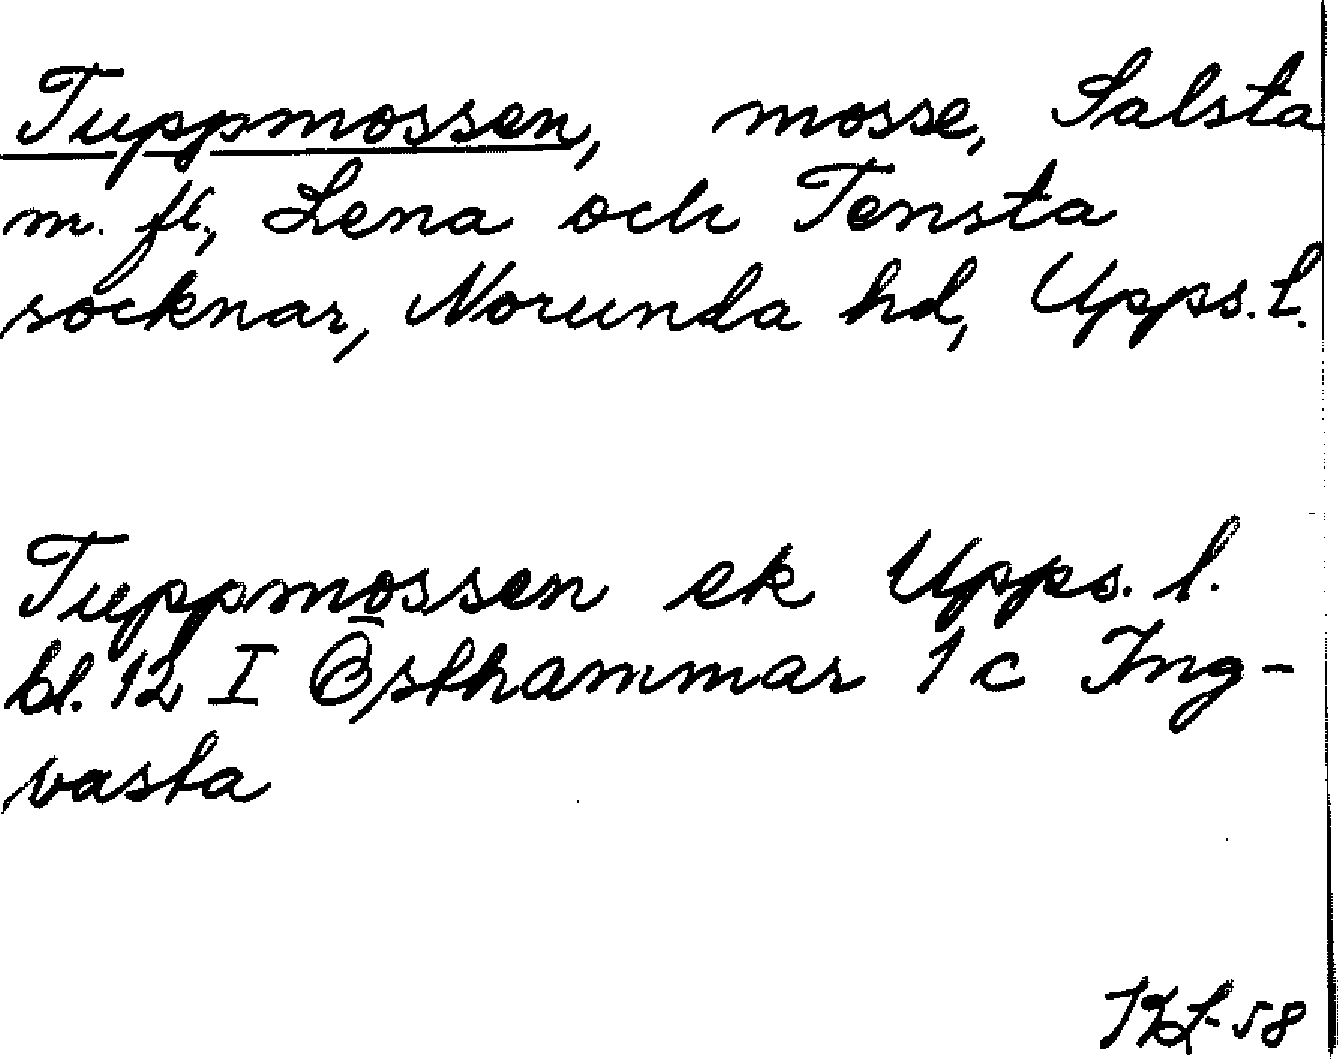 Tuppmossen, mosse, Salsta
m. fl., Lena och Tensta
socknar, Norunda hd, Upps. l.
Tuppmossen ek Upps. l.
bl. 12 I Östhammar 1 c Ing-
vasta
-58